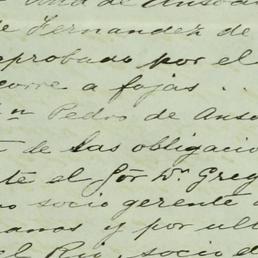 de Anso
e Fernandez de
aprobado por el
corre a fojas ..
n Pedro de Anso
t de las obligacio
te el Sōr Dn Greg
no socio gerente
anos y por ult
el Rio, socio d